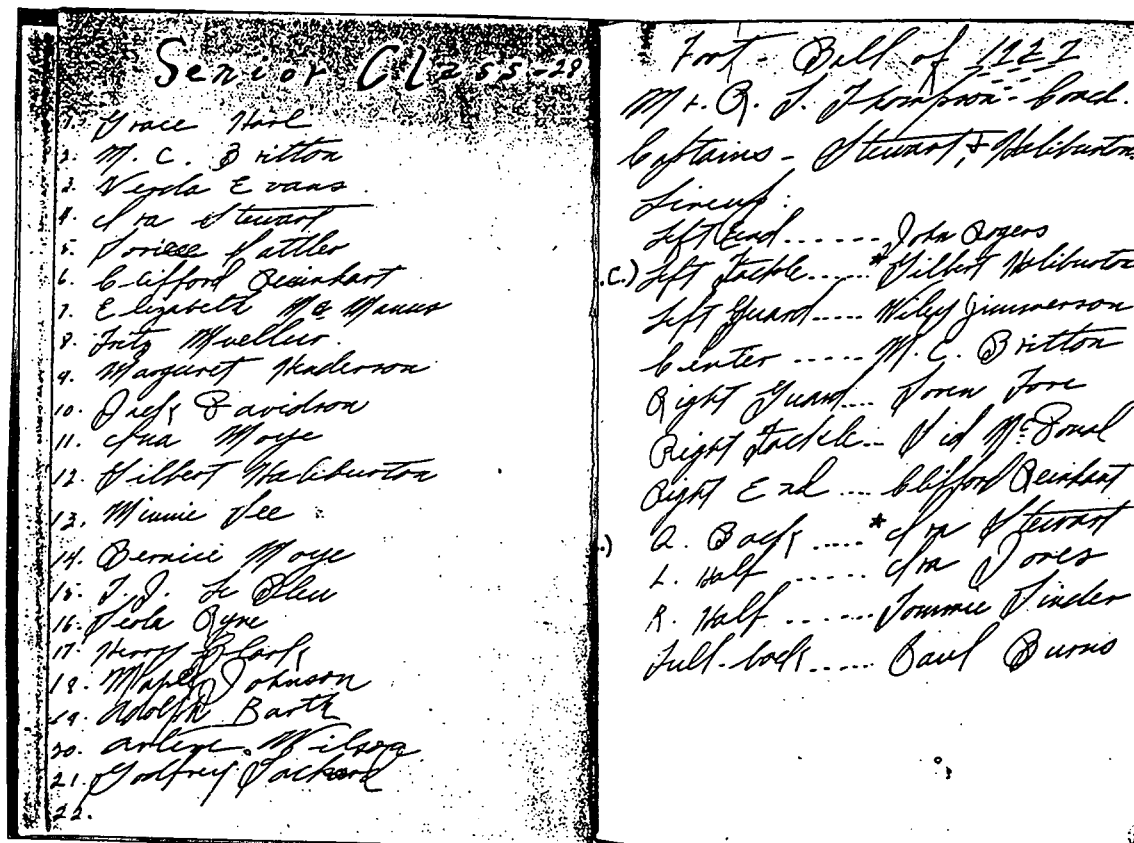 Senior Class-28
1. Grace Harl
2. M. C. Britton
3. Verda Evans
4. Ira Stewart
5. Sattler
6. Clifford Reinhart
7. Elizabeth McManus
8. Fritz Mueller
9. Margaret Henderson
10. Jack Davidson
11. Ina Moye
12. Gilbert Haliburton
13. Minnie Lee
14. Bernice Moye
15. Le Bleu
16. Leola Ryne
17. Henry Clark
18. Johnson
19. Adolph Barth
20. Arlene Wilson
21. Godfrey Packard
22.
Foot-Ball of 1927
Mr. R. Thompson-Coach.
Captains - Stewart & Haliburton
Lineup:
Left End...... John Rogers
.C.) Left Tackle..... *Gilbert Haliburton
Left Guard..... Wiley Jimmerson
Center ..... M. C. Britton
Right Guard... Loren Fore
Right Tackle... Sid
Right End .... Clifford Reinhart
.) Q. Back ..... *Ira Stewart
L. Half ..... Ira Jones
R. Half ...... Tommie
Full-back ..... Paul Burns